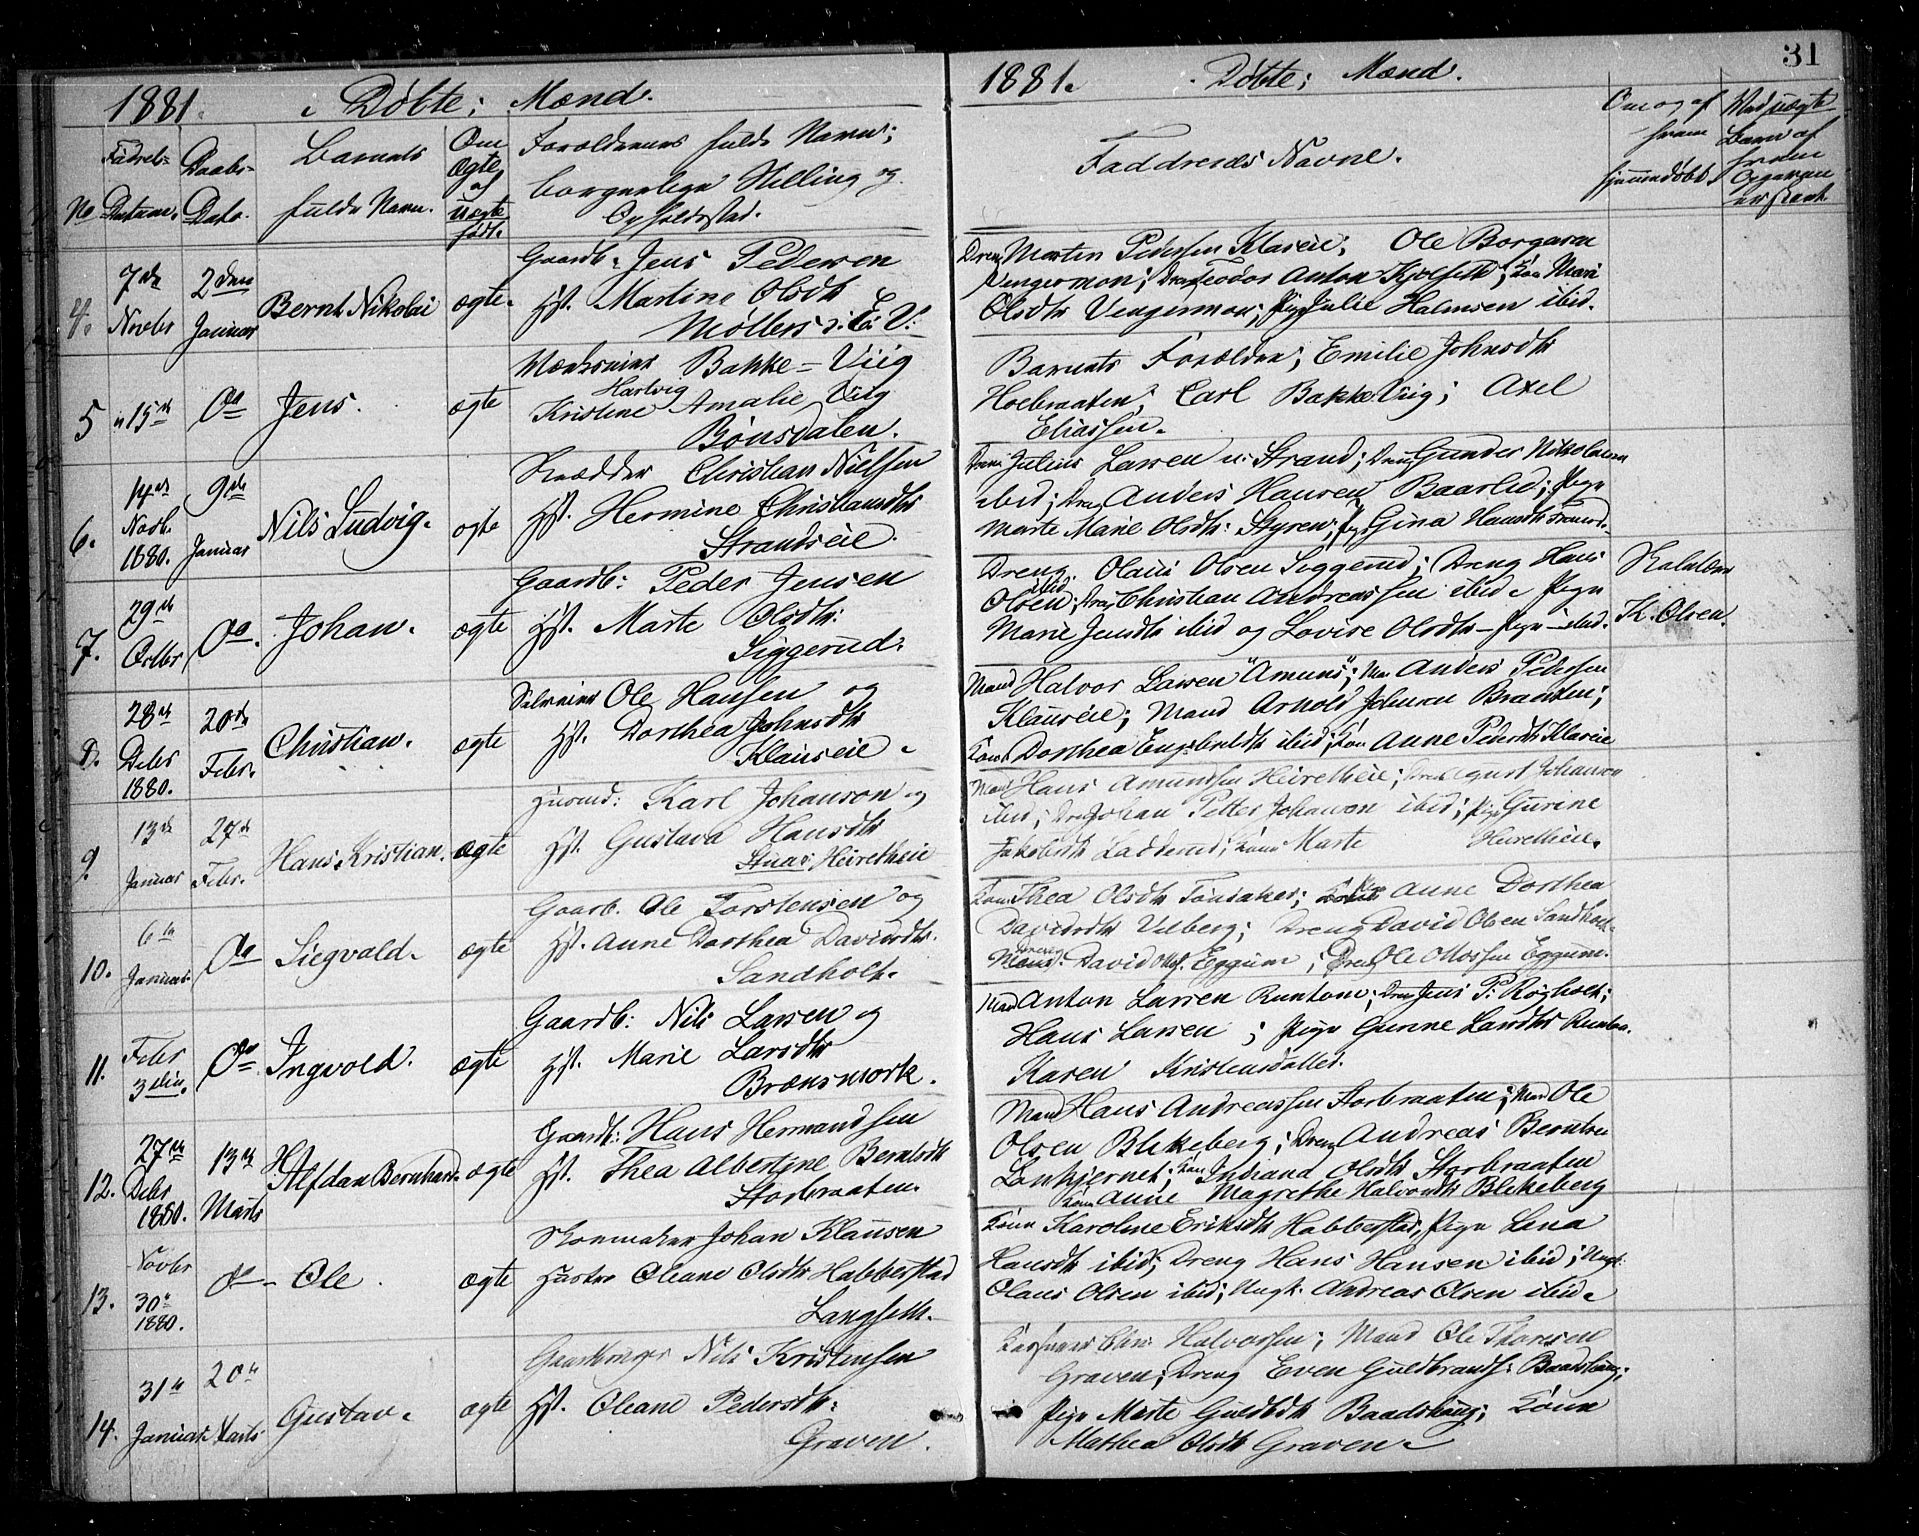 1881. Døbte; Mænd.
Fødsels-
Datum.
Daabs-
Dato.
Barnets
fulde Navn.
No
Om
Ægte
ell
Uægte
født.
Forældrenes fulde Navne;
borgerlige Stilling og
Opholdssted.
4.
7de
Novbr
2den
Januar
Bernt Nikolai
ægte.
Gaardb. Jens Pedersen
Hst. Martine Olsdtr
Møllers
5
15de
Do
Jens.
ægte
Bakke-Viig
Hartvig
Kristine Amalie Viig
Bönsdalen.
6.
14de
Novb.
1880.
9de
Januar
Nils Ludvig.
ægte
Skrædder Christian Nielsen
Hst. Hermine Christiansdtr
Strandseie.
7.
29de
Octbr
Do.
Johan.
ægte
Gaardb: Peder Jensen
Hst. Marte Olsdtr:
Siggerud.
8.
28de
Debr
1880.
20de
Febr.
Christian.
ægte
Selveier Ole Hansen og
Hst. Dorthea Johnsdtr
Klauseie.
9.
13de
Januar
27de
Febr.
Hans Kristian.
ægte
Husmd: Karl Johanson og
Hst. Gustava Hansdtr
Heieretheie
10.
6te
Januar.
Do
Siegvald.
ægte
Gaarb. Ole Torstensen og
Hst. Anne Dorthea Davidsdtr.
Sandholt.
11.
Febr
3die.
Do
Ingvold.
ægte
Gaardb: Nils Larsen og
Hst. Marie Larsdtr
Brænsmork.
12.
27de
Debr
1880.
13de
Marts
Halfdan Bernhard.
ægte
Gaardb: Hans Hermandsen
Hst. Thea Albertine Berntsdtr
Storbraaten.
13.
Novbr
30te
1880.
Do
Ole.
ægte
Skomaker Johan Klausen
Hustru Oleane Olsdtr Habberstad
Langseth.
14.
31te
Januar
20de
Marts
Gustav.
ægte
Gaardbruger Nils Kristensen
Hst. Oleane Pedersdtr:
Graven.
31
1881. Døbte; Mænd.
Faddrenes Navne.
Om og af
hvem
hjemmedøbt.
Ved uægte
Barn af
hvem
Opgaven
er skeet.
Dreng Martin Pedersen Klaseie; Ole Borgersen
Vengermoen; Dreng Teodor Anton Kjolseth; Kone Mari
Olsdtr Vengermoen; Pige Julie Halvorsen ibid.
Barnets Forældre; Emilie Johnsdtr
Holbraaten; Carl Bakke Viig; Axel
Eliassen.
Dreng Julius Larsen Strand; Dreng Gunder Nikolaisen
ibid; Dreng Anders Hansen Baarlid; Pige
Marte Marie Olsdtr: Styren; Pige Gina Hansdtr
Dreng Olaus Olsen Siggerud; Dreng Hans
Olsen ibid; Dreng Christian Andreassen ibid. Pige
Marie Jensdtr ibid og Lovise Olsdtr - Pige - ibid.
K. Olsen.
Mand Halvor Larsen "Amuns"; Mand Anders Pedersen
Klauseie; Mand Arnold Johnsen Braaten;
Kone Dorthea Engebretsdtr ibid; Kone Anne Pedersdtr Klaseie
Mand Hans Amundsen Heieretheie; Dreng August Johanson
ibid; Dreng Johan Petter Johanson ibid; Pige Gurine
Jakobsdtr Ladderud; Kone Marte Heieretheie.
Kone Thea Olsdtr Tønsaker; Pige Anne Dorthea
Davidsdtr Vilberg; Dreng David Olsen Sandholt.
Dreng David Eggum; Dreng Ole Mossen Eggum.
Mand Anton Larsen Runtom; Dreng Jens P. Røgholt;
Hans Larsen; Pige Gurine Larsdtr
Karen Kristensdatter.
Mand Hans Andreassen Storbraaten; Mand Ole
Olsen Blekeberg; Dreng Andreas Berntsen
Lankjernet; Kone Indiand Olsdtr Storbraaten
Kone Anne Magrethe Halvorsdtr Blekeberg
Kone Karoline Eriksdtr Habberstad, Pige Lena
Hansdtr ibid; Dreng Hans Hansen ibid; Ungk.
Olaus Olsen ibid; Ungk. Andreas Olsen ibid.
Halvorsen; Mand Ole Thoresen
Graven; Dreng Even Guldbrands: Baadshaug;
Pige Marte Guldbdtr Baadshaug; Kone
Mathea Olsdtr Graven.